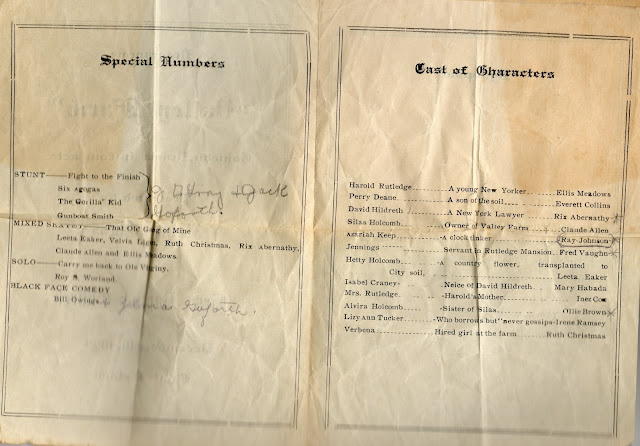 Special Numbers
STUNT——Fight to the Finish
Six Agogas
The Gorilla' Kid
Gunboat Smith
& Jack
Goforth.
MIXED SEXTET——That Old Gang of Mine
Leeta Eaker, Velvia Ligon, Ruth Christmas, Rix Abernathy,
Claude Allen and Ellis Meadows.
SOLO——Carry me back to Ole Virginy.
Roy M. Worland.
BLACK FACE COMEDY
Bill Owings & Goforth.
Cast of Characters
Harold Rutledge........A young New Yorker......Ellis Meadows
Perry Deane............A son of the soil........Everett Collins
David Hildreth.........A New York Lawyer......Rix Abernathy x
Silas Holcomb..........Owner of Valley Farm......Claude Allen
Azariah Keep...........A clock tinker............Ray Johnson
Jennings...........Servant in Rutledge Mansion..Fred Vaughn
Hetty Holcomb..........A country flower, transplanted to
City soil,....................Leeta Eaker
Isabel Craney..........Neice of David Hildreth....Mary Habada
Mrs. Rutledge..........-Harold's Mother..........Inez Cox
Alvira Holcomb.........-Sister of Silas............Ollie Brown x
Lizy Ann Tucker........-Who borrows but "never gossips-Irene Ramsey
Verbena................Hired girl at the farm......Ruth Christmas